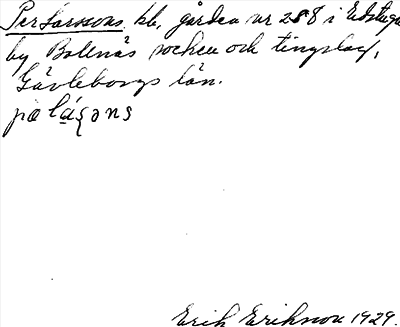 Per Larssons, bb, gården nr 288 i Edstuga
by Bollnäs socken och tingslag,
Gävleborgs län.
pæ lása̡ns
Erik Eriksson 1929.